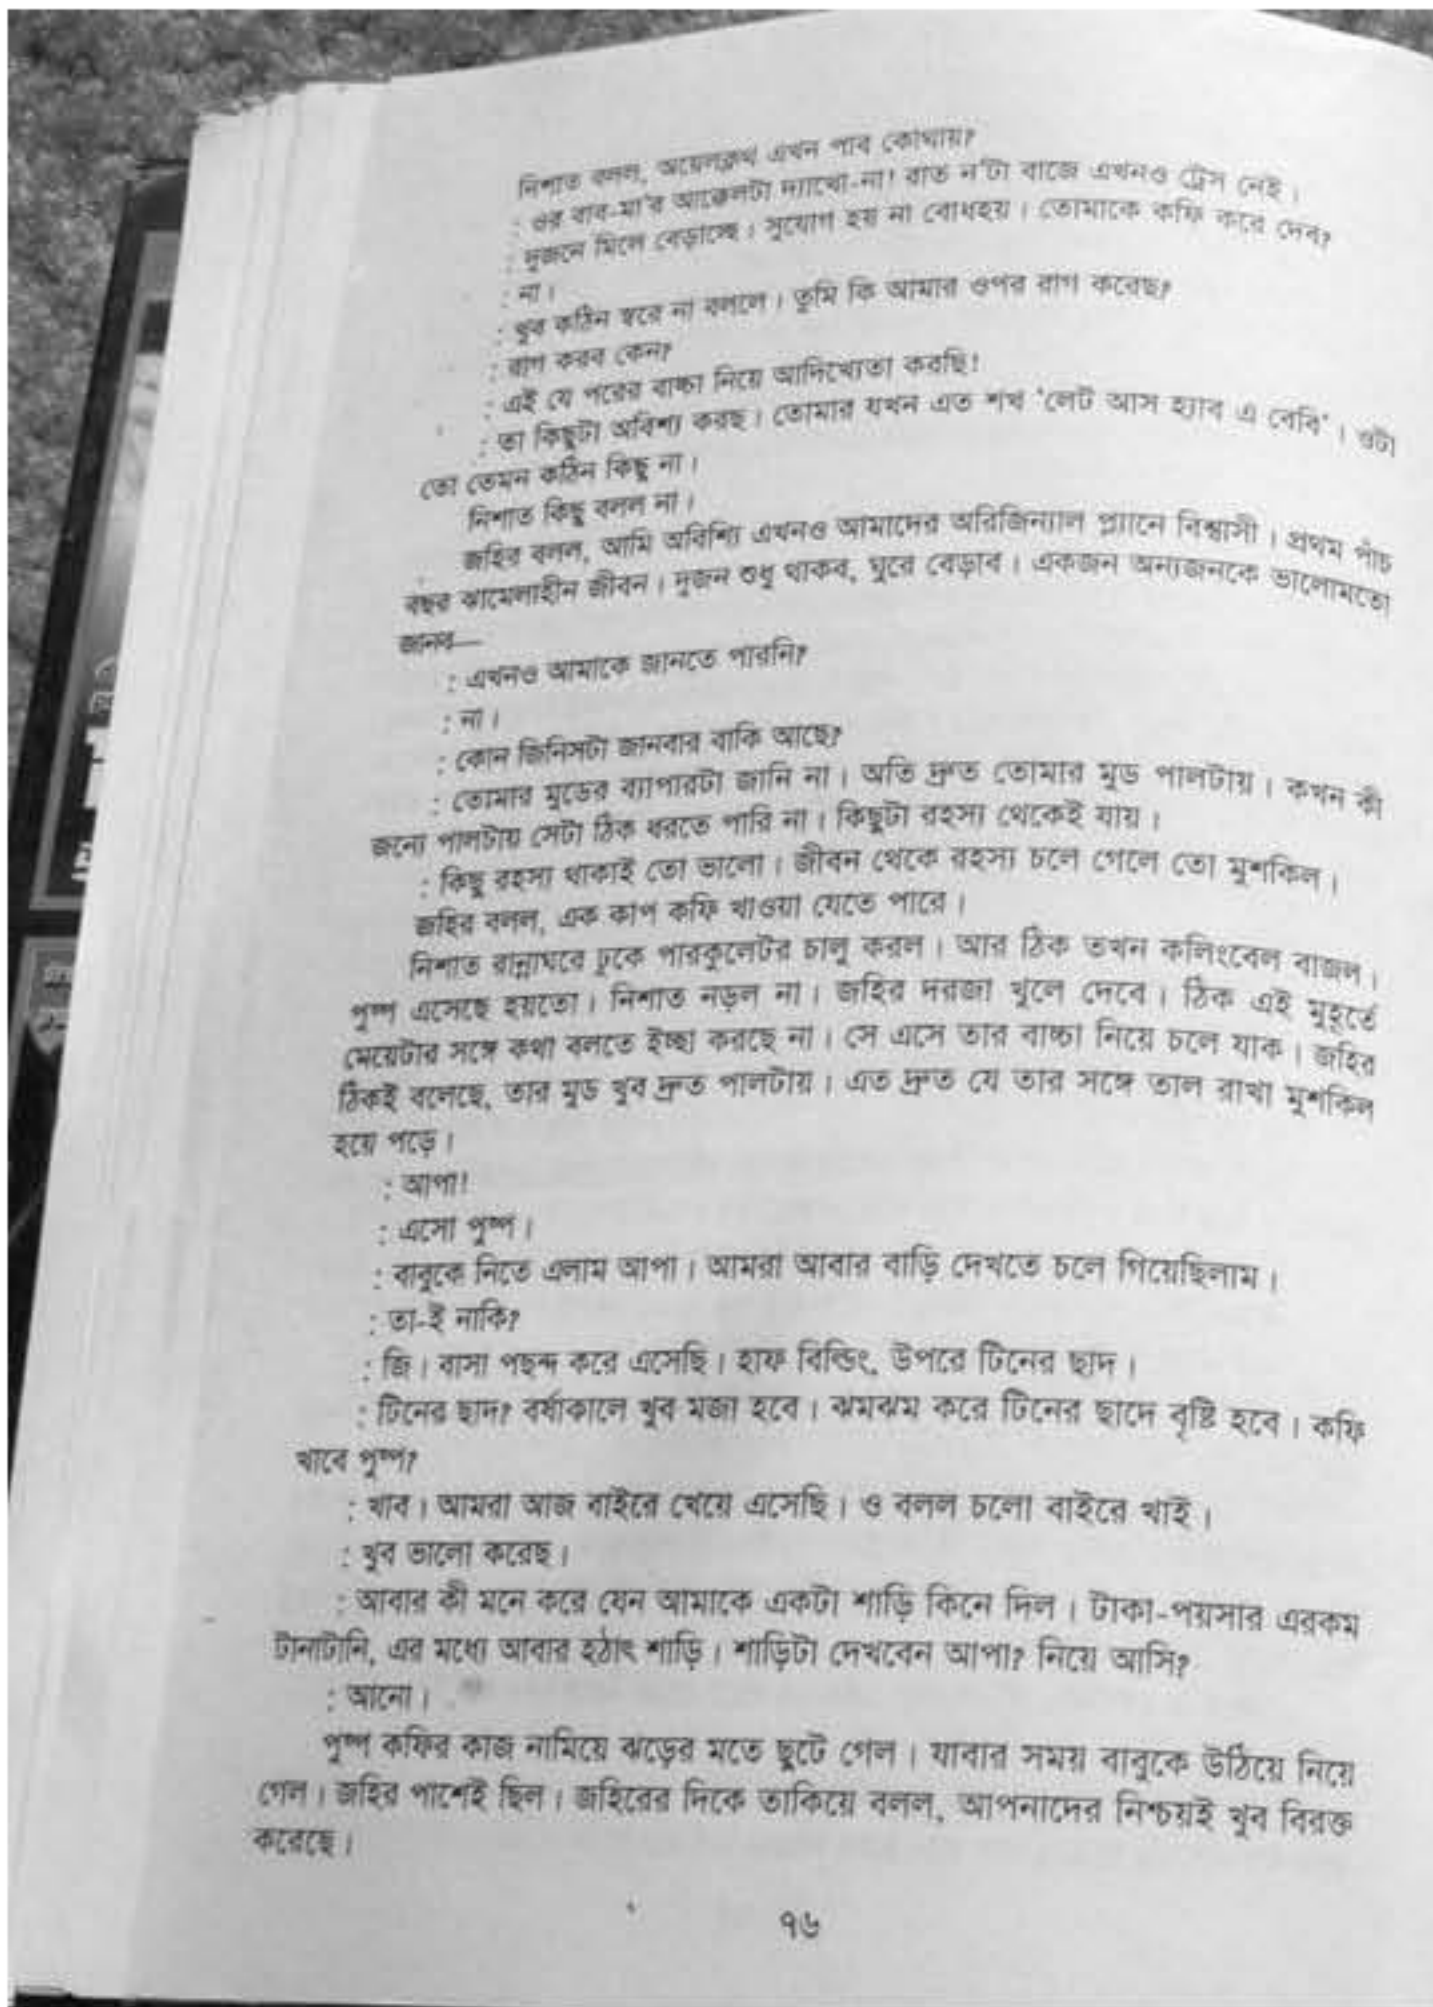 নিশাত বলল, অয়েলক্লথ এখন পাব কোথায়?
: ওর বাব-মা'র আক্কেলটা দ্যাখো-না! রাত ন'টা বাজে এখনও ট্রেস নেই।
: দুজনে মিলে বেড়াচ্ছে। সুযোগ হয় না বোধহয়। তোমাকে কফি করে দেব?
: না।
: খুব কঠিন স্বরে না বললে। তুমি কি আমার ওপর রাগ করেছ?
: রাগ করব কেন?
: এই যে পরের বাচ্চা নিয়ে আদিখ্যেতা করছি!
: তা কিছুটা অবিশ্য করছ। তোমার যখন এত শখ 'লেট আস হ্যাব এ বেবি'। ওটা
তো তেমন কঠিন কিছু না।
নিশাত কিছু বলল না।
জহির বলল, আমি অবিশ্যি এখনও আমাদের অরিজিন্যাল প্ল্যানে বিশ্বাসী। প্রথম পাঁচ
বছর ঝামেলাহীন জীবন। দুজন শুধু থাকব, ঘুরে বেড়াব। একজন অন্যজনকে ভালোমতো
জানব—
: এখনও আমাকে জানতে পারনি?
: না।
: কোন জিনিসটা জানবার বাকি আছে?
: তোমার মুডের ব্যাপারটা জানি না। অতি দ্রুত তোমার মুড পালটায়। কখন কী
জন্যে পালটায় সেটা ঠিক ধরতে পারি না। কিছুটা রহস্য থেকেই যায়।
: কিছু রহস্য থাকাই তো ভালো। জীবন থেকে রহস্য চলে গেলে তো মুশকিল।
জহির বলল, এক কাপ কফি খাওয়া যেতে পারে।
নিশাত রান্নাঘরে ঢুকে পারকুলেটর চালু করল। আর ঠিক তখন কলিংবেল বাজল।
পুষ্প এসেছে হয়তো। নিশাত নড়ল না। জহির দরজা খুলে দেবে। ঠিক এই মুহূর্তে
মেয়েটার সঙ্গে কথা বলতে ইচ্ছা করছে না। সে এসে তার বাচ্চা নিয়ে চলে যাক। জহির
ঠিকই বলেছে, তার মুড খুব দ্রুত পালটায়। এত দ্রুত যে তার সঙ্গে তাল রাখা মুশকিল
হয়ে পড়ে।
: আপা!
: এসো পুষ্প।
: বাবুকে নিতে এলাম আপা। আমরা আবার বাড়ি দেখতে চলে গিয়েছিলাম।
: তা-ই নাকি?
: জি। বাসা পছন্দ করে এসেছি। হাফ বিল্ডিং, উপরে টিনের ছাদ।
: টিনের ছাদ? বর্ষাকালে খুব মজা হবে। ঝমঝম করে টিনের ছাদে বৃষ্টি হবে। কফি
খাবে পুষ্প?
: খাব। আমরা আজ বাইরে খেয়ে এসেছি। ও বলল চলো বাইরে খাই।
: খুব ভালো করেছ।
: আবার কী মনে করে যেন আমাকে একটা শাড়ি কিনে দিল। টাকা-পয়সার এরকম
টানাটানি, এর মধ্যে আবার হঠাৎ শাড়ি। শাড়িটা দেখবেন আপা? নিয়ে আসি?
: আনো।
পুষ্প কফির কাজ নামিয়ে ঝড়ের মতে ছুটে গেল। যাবার সময় বাবুকে উঠিয়ে নিয়ে
গেল। জহির পাশেই ছিল। জহিরের দিকে তাকিয়ে বলল, আপনাদের নিশ্চয়ই খুব বিরক্ত
করেছে।
৭৬